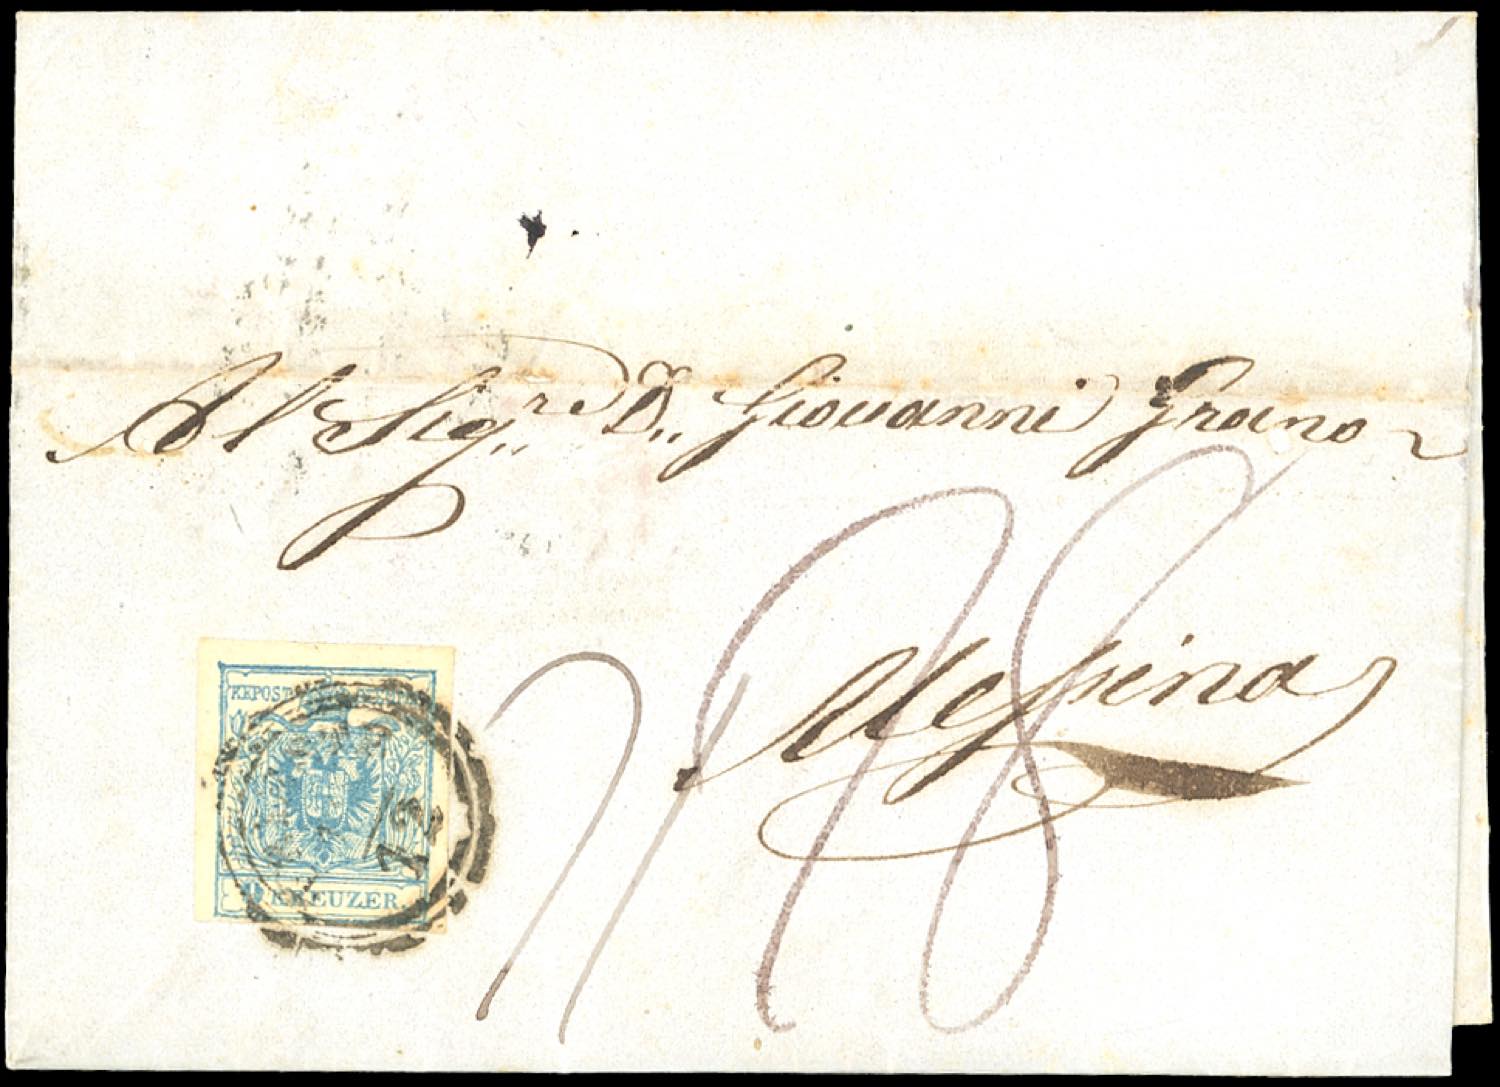 Al Sig,,re D,,n Giovanni Grano
Messina
18
KKPOST
9 KREUZER.